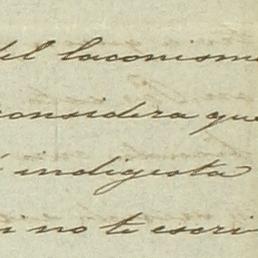 del laconismo
considera que
indigesta
no te escri